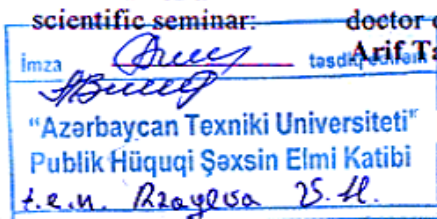 scientific seminar: doctor
İmza təsdiq Arif Ta
"Azərbaycan Texniki Universiteti"
Publik Hüquqi Şəxsin Elmi Katibi
t.e.n. Rzayeva